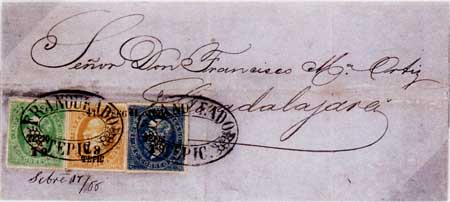 Señor Don Francisco Mª Ortiz
Guadalajara
FRANQUEADO
TEPIC.
FRANQUEADO
TEPIC.
TEPIC